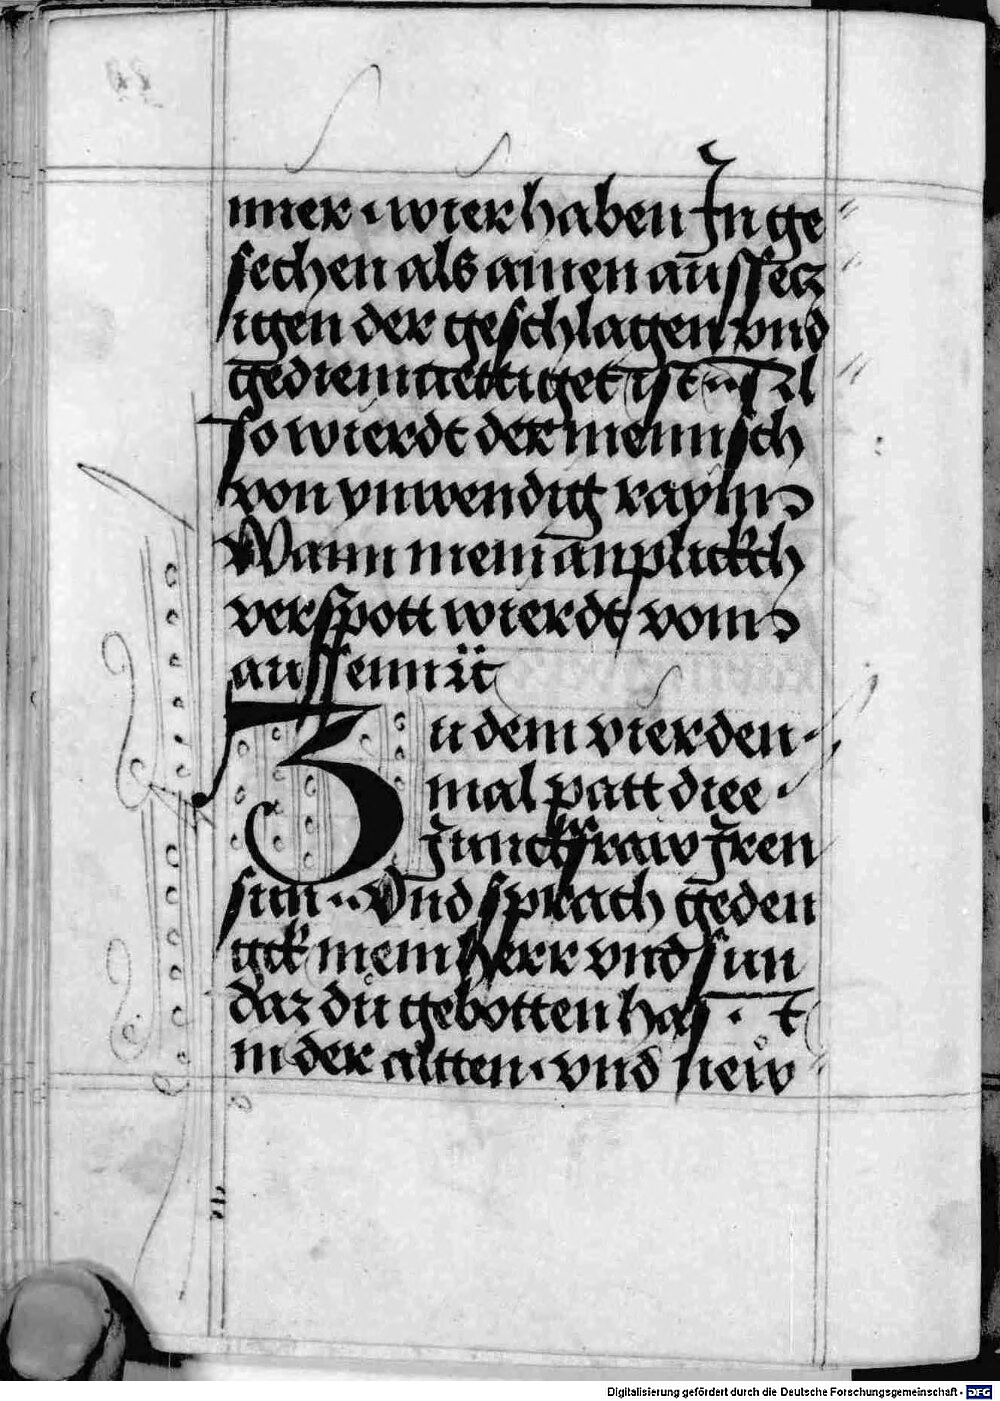 nner · wier haben In ge
sechen als ainen aussecz
igen der geschlagen vnd
gediemuettiget ist · Al
so wierdt der mennsch
von ynwendig rayn
Wann mein anplickch
verspott wierdt vom
aussenn
Zu dem vierden
mal patt diee
Junckfraw Jren
sun · Vnd sprach geden
gck mein herr vnd sun
daz du gebotten hast ·
in der altten · vnd new
Digitalisierung gefördert durch die Deutsche Forschungsgemeinschaft - DFG